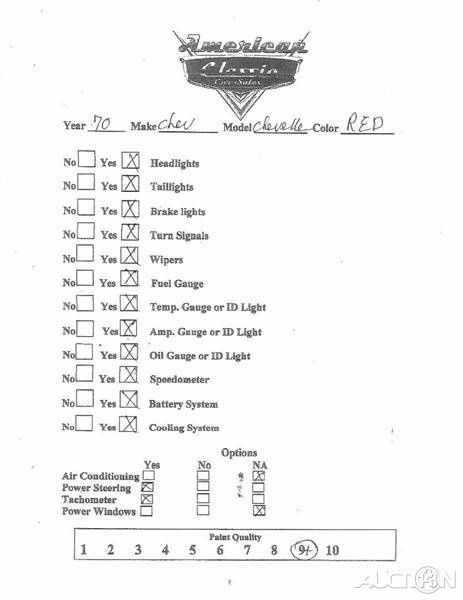 American
Classic
Car Sales
Year 70 Make Chev Model Chevelle Color RED
No Yes X Headlights
No Yes X Taillights
No Yes X Brake lights
No Yes X Turn Signals
No Yes X Wipers
No Yes X Fuel Gauge
No Yes X Temp. Gauge or ID Light
No Yes X Amp. Gauge or ID Light
No Yes X Oil Gauge or ID Light
No Yes X Speedometer
No Yes X Battery System
No Yes X Cooling System
Options
Yes No NA
Air Conditioning X
Power Steering X
Tachometer X
Power Windows X
Paint Quality
1 2 3 4 5 6 7 8 9+ 10
AUCTION 13